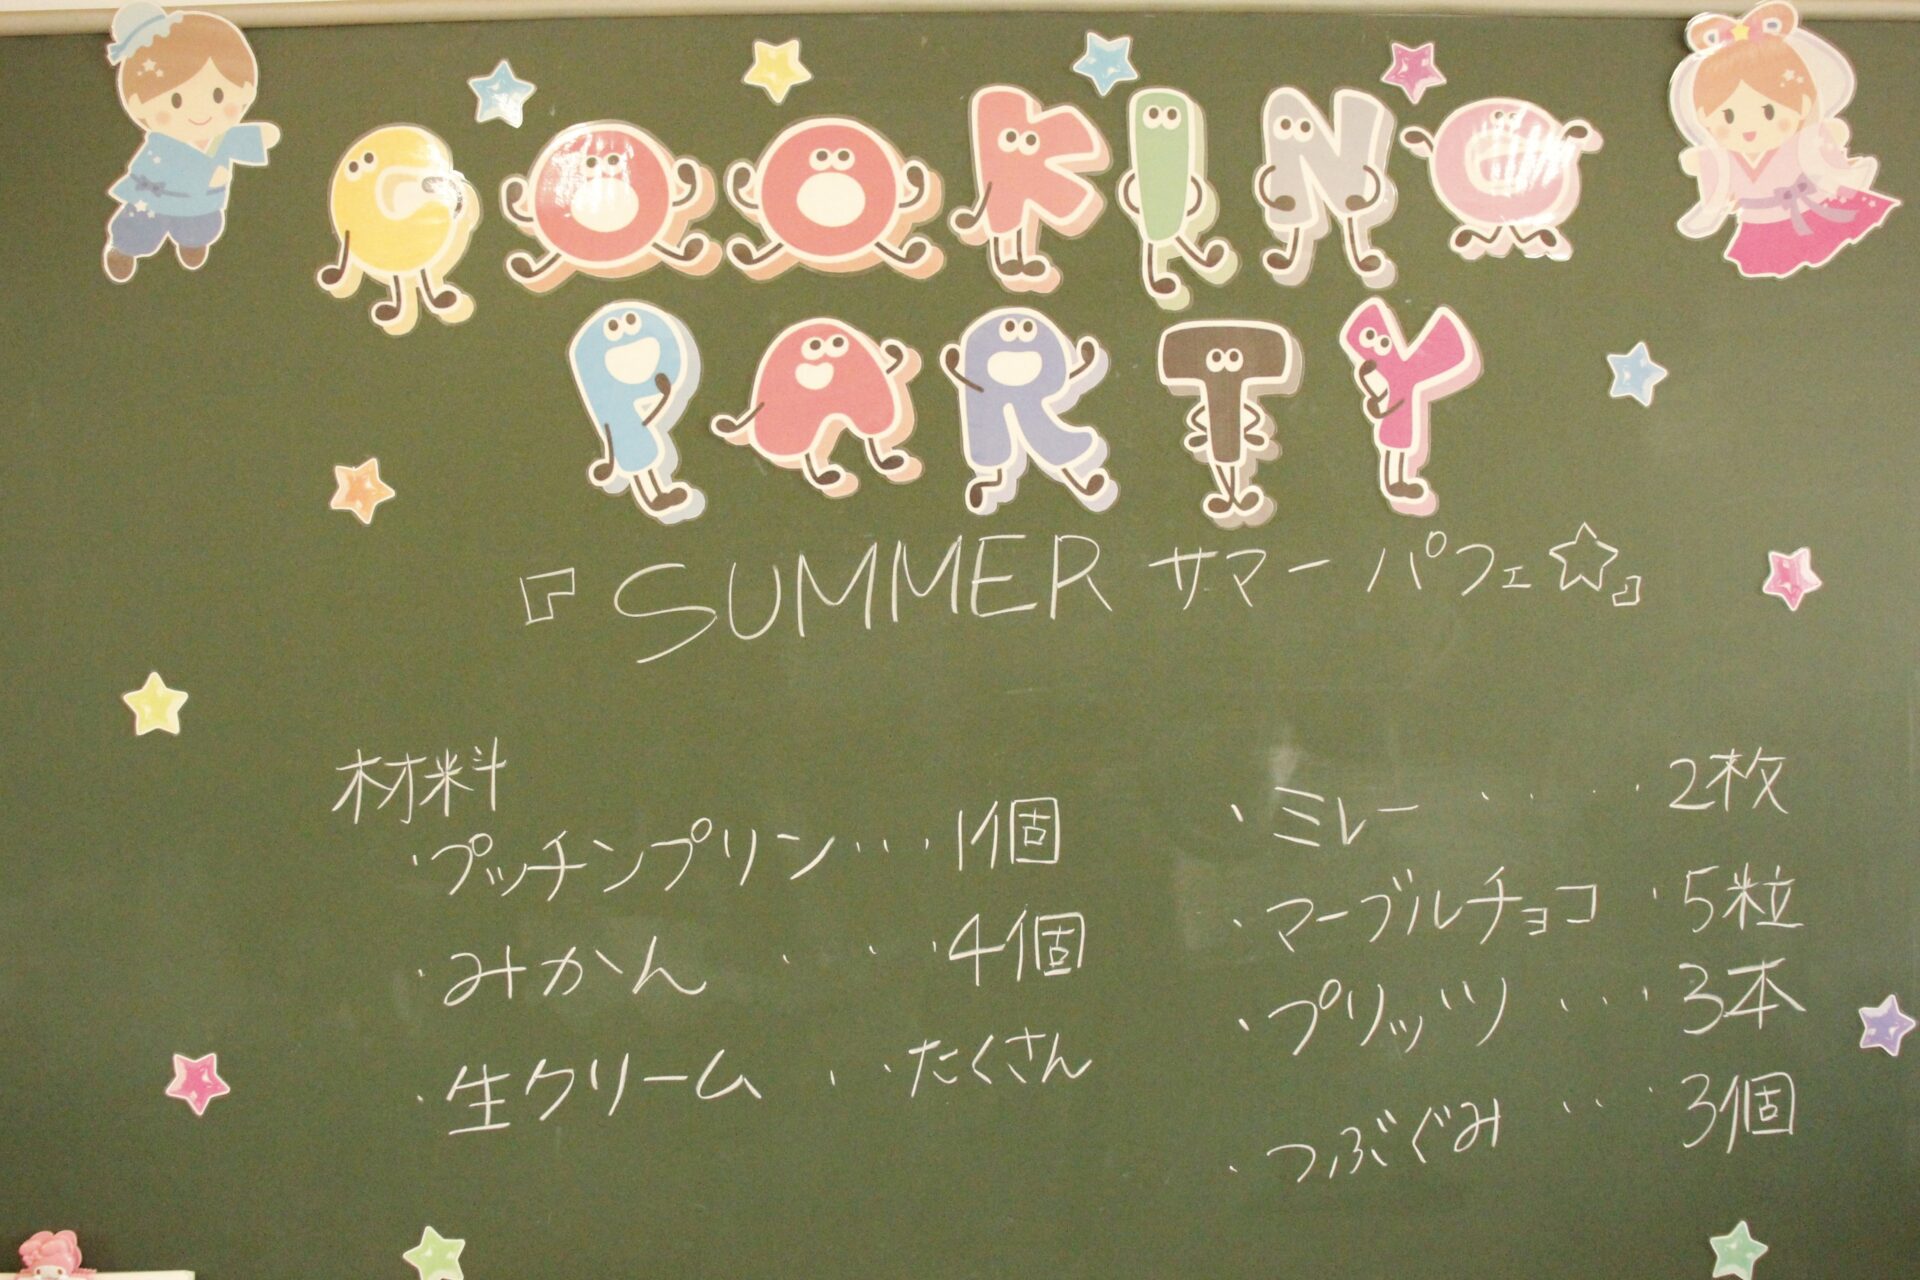 COOKING
PARTY
『SUMMER サマーパフェ☆』
材料
・プッチンプリン・・・1個
・みかん・・・4個
・生クリーム・・・たくさん
・ミレー・・・・2枚
・マーブルチョコ・5粒
・プリッツ・・・3本
・つぶぐみ・・・3個